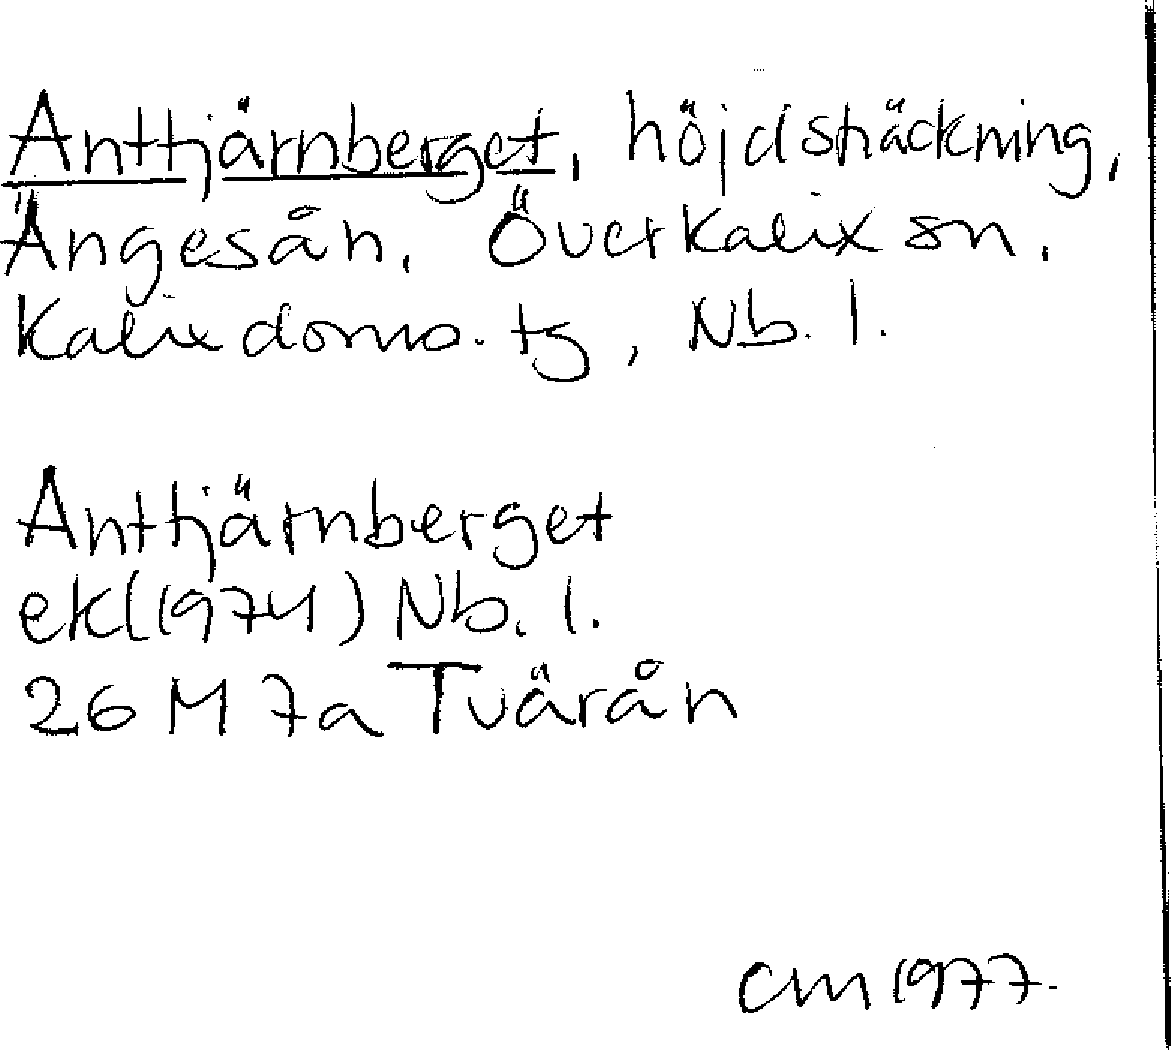 Anttjärnberget, höjdsträckning,
Ängesån, Överkalix sn,
Kalix doms. tg, Nb. l.
Anttjärnberget
ek(1974) Nb. l.
26 M 7a Tvärån
CM 1977.